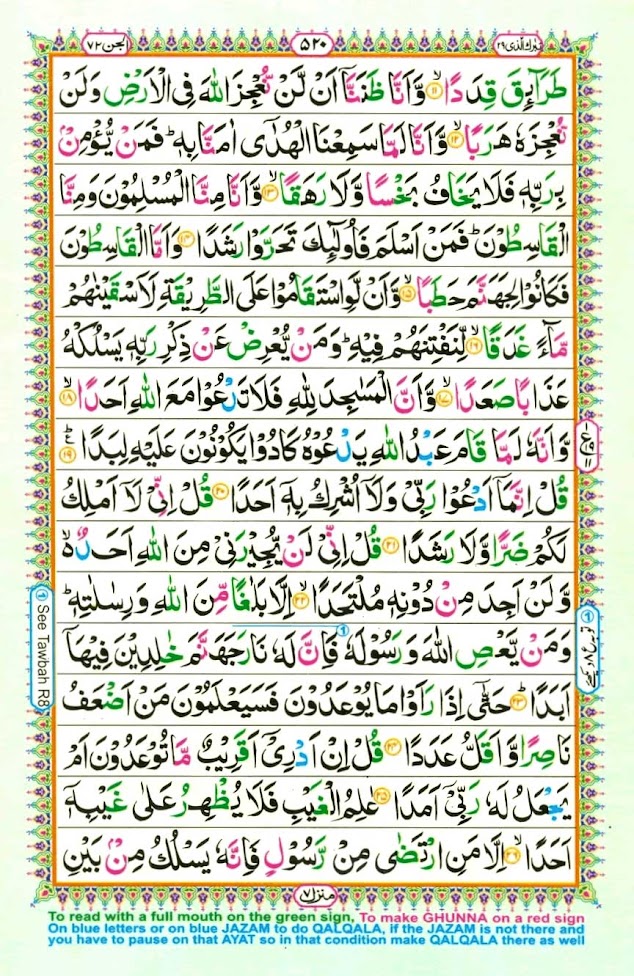 تبٰرك الذى ٢٩
٥٢٠
الجن ٧٢
طَرَآئِقَ قِدَدًا ۙ﴿۱۱﴾ وَّاَنَّا ظَنَنَّاۤ اَنْ لَّنْ نُّعْجِزَ اللّٰهَ فِى الْاَرْضِ وَلَنْ
نُّعْجِزَهٗ هَرَبًا ۙ﴿۱۲﴾ وَّاَنَّا لَمَّا سَمِعْنَا الْهُدٰٓى اٰمَنَّا بِهٖ ؕ فَمَنْ يُّؤْمِنْۢ
بِرَبِّهٖ فَلَا يَخَافُ بَخْسًا وَّلَا رَهَقًا ۙ﴿۱۳﴾ وَّاَنَّا مِنَّا الْمُسْلِمُوْنَ وَمِنَّا
الْقَاسِطُوْنَ ؕ فَمَنْ اَسْلَمَ فَاُولٰٓئِكَ تَحَرَّوْا رَشَدًا ﴿۱۴﴾ وَاَمَّا الْقَاسِطُوْنَ
فَكَانُوْا لِجَهَنَّمَ حَطَبًا ۙ﴿۱۵﴾ وَّاَنْ لَّوِاسْتَقَامُوْا عَلَى الطَّرِيْقَةِ لَاَسْقَيْنٰهُمْ
مَّآءً غَدَقًا ۙ﴿۱۶﴾ لِّنَفْتِنَهُمْ فِيْهِ ؕ وَمَنْ يُّعْرِضْ عَنْ ذِكْرِ رَبِّهٖ يَسْلُكْهُ
عَذَابًا صَعَدًا ۙ﴿۱۷﴾ وَّاَنَّ الْمَسٰجِدَ لِلّٰهِ فَلَا تَدْعُوْا مَعَ اللّٰهِ اَحَدًا ۙ﴿۱۸﴾
وَّاَنَّهٗ لَمَّا قَامَ عَبْدُ اللّٰهِ يَدْعُوْهُ كَادُوْا يَكُوْنُوْنَ عَلَيْهِ لِبَدًا ؕ﴿۱۹﴾ ع
قُلْ اِنَّمَاۤ اَدْعُوْا رَبِّىْ وَلَاۤ اُشْرِكُ بِهٖۤ اَحَدًا ﴿۲۰﴾ قُلْ اِنِّىْ لَاۤ اَمْلِكُ
لَكُمْ ضَرًّا وَّلَا رَشَدًا ﴿۲۱﴾ قُلْ اِنِّىْ لَنْ يُّجِيْرَنِىْ مِنَ اللّٰهِ اَحَدٌ ۙ
وَّلَنْ اَجِدَ مِنْ دُوْنِهٖ مُلْتَحَدًا ۙ﴿۲۲﴾ اِلَّا بَلٰغًا مِّنَ اللّٰهِ وَرِسٰلٰتِهٖ ؕ
وَمَنْ يَّعْصِ اللّٰهَ وَرَسُوْلَهٗ فَاِنَّ لَهٗ نَارَ جَهَنَّمَ خٰلِدِيْنَ فِيْهَاۤ
اَبَدًا ؕ﴿۲۳﴾ حَتّٰٓى اِذَا رَاَوْا مَا يُوْعَدُوْنَ فَسَيَعْلَمُوْنَ مَنْ اَضْعَفُ
نَاصِرًا وَّاَقَلُّ عَدَدًا ﴿۲۴﴾ قُلْ اِنْ اَدْرِىْۤ اَقَرِيْبٌ مَّا تُوْعَدُوْنَ اَمْ
يَجْعَلُ لَهٗ رَبِّىْۤ اَمَدًا ﴿۲۵﴾ عٰلِمُ الْغَيْبِ فَلَا يُظْهِرُ عَلٰى غَيْبِهٖۤ
اَحَدًا ۙ﴿۲۶﴾ اِلَّا مَنِ ارْتَضٰى مِنْ رَّسُوْلٍ فَاِنَّهٗ يَسْلُكُ مِنْۢ بَيْنِ
ع
١١
① See Tawbah R8
منزل ٧
To read with a full mouth on the green sign, To make GHUNNA on a red sign
On blue letters or on blue JAZAM to do QALQALA, if the JAZAM is not there and
you have to pause on that AYAT so in that condition make QALQALA there as well